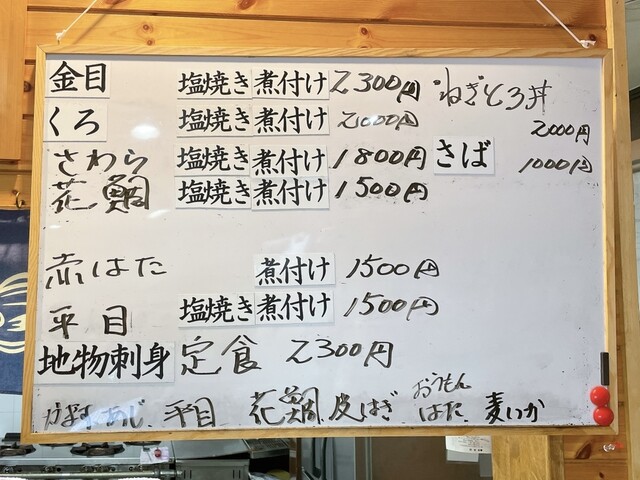 金目 塩焼き 煮付け 2300円 ねぎとろ丼
くろ 塩焼き 煮付け 2000円 2000円
さわら 塩焼き 煮付け 1800円 さば 1000円
花鯛 塩焼き 煮付け 1500円
赤はた 煮付け 1500円
平目 塩焼き 煮付け 1500円
地物刺身 定食 2300円
あじ 平目 花鯛 皮はぎ おうもんはた 麦いか